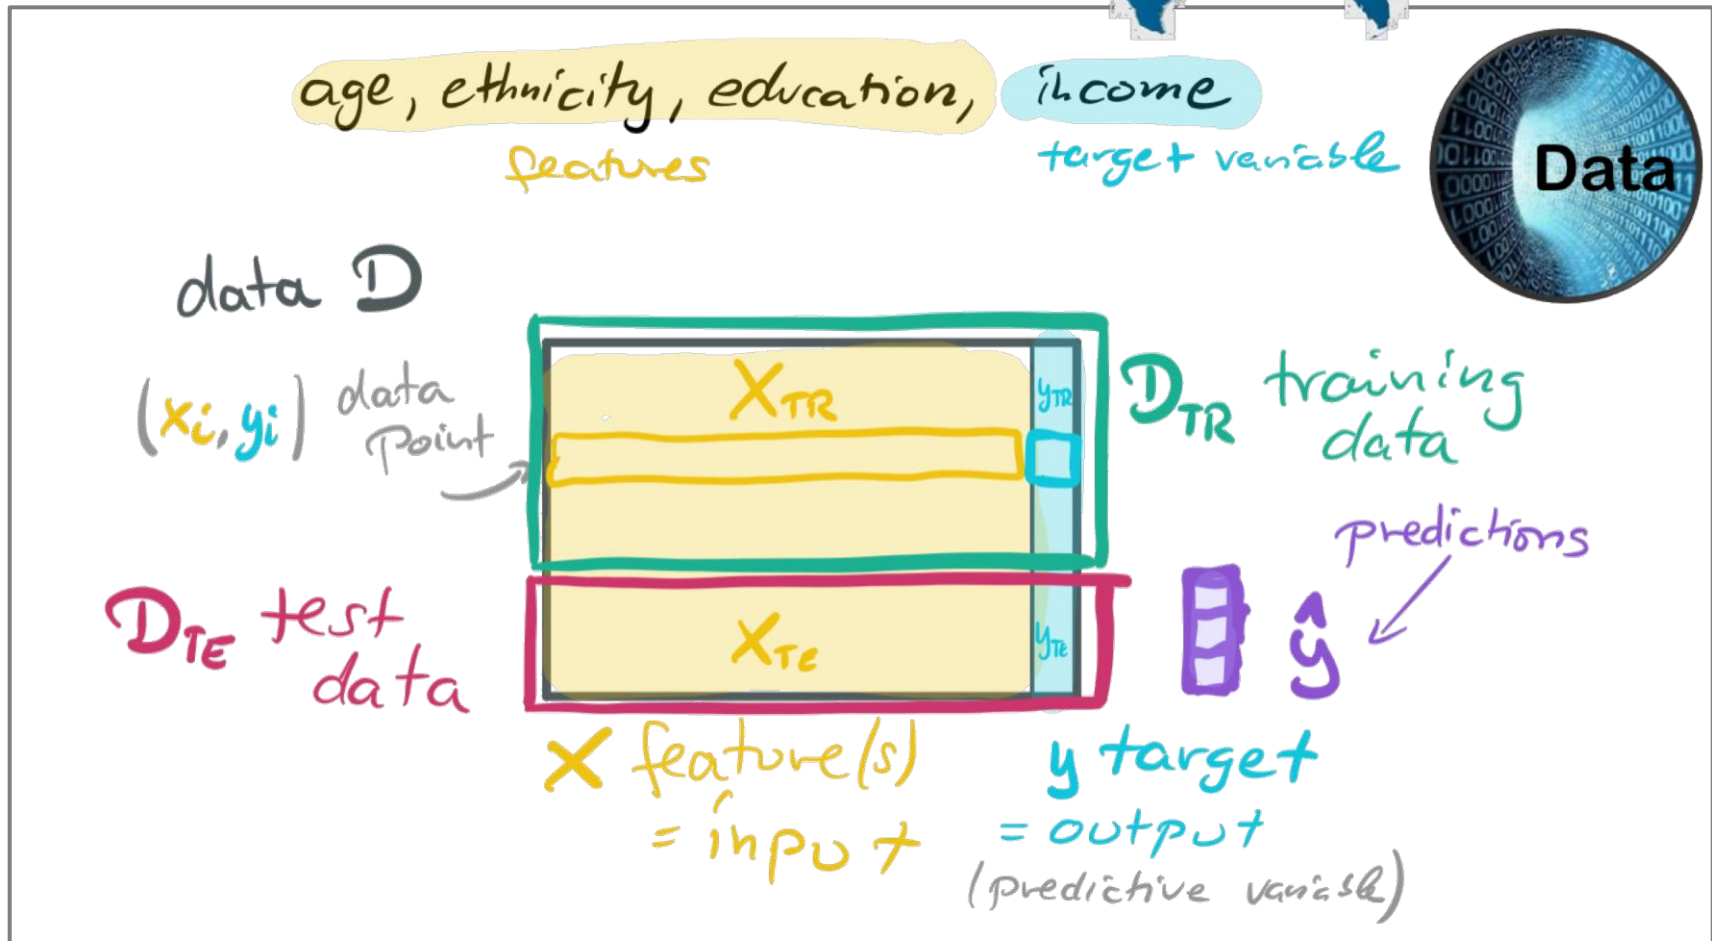 age, ethnicity, education, income
features
target variable
Data
data D
(xi, yi) data point
XTR
yTR
DTR training data
predictions
DTE test data
XTE
yTE
ŷ
X feature(s)
= input
y target
= output
(predictive variable)